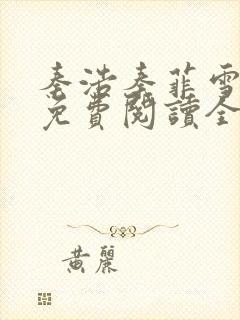 秦浩秦菲雪
免費閱讀全
黃麗